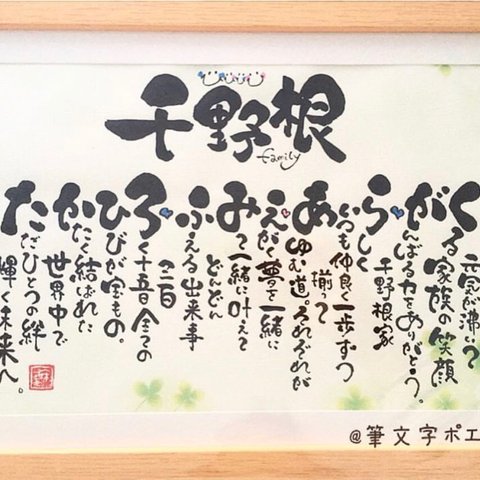 千野根
family
元気が沸いて
くる家族の笑顔
がんばる力をありがとう。
千野根家
らしく
いつも仲良く一歩ずつ
揃って
あゆむ道。それぞれが
えがく夢を一緒に
みて一緒に叶えて
どんどん
ふえる出来事
三百
ろく十五日全ての
ひびが宝もの。
かたく結ばれた
世界中で
ただひとつの絆
輝く未来へ。
@筆文字ポエ